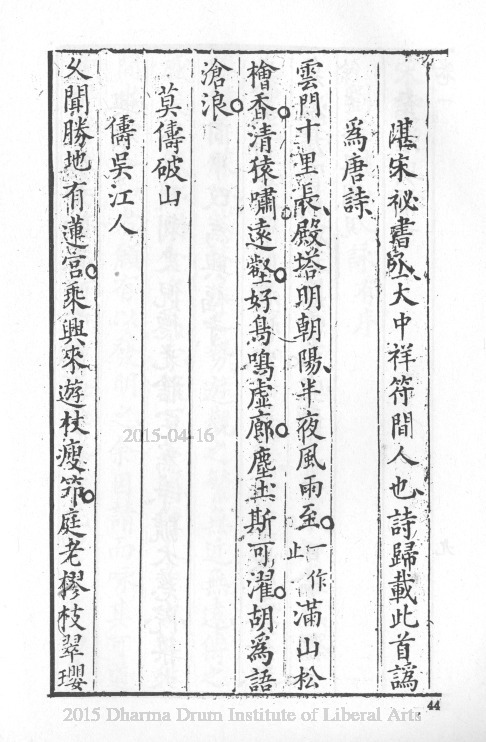 湛宋祕書丞大中祥符間人也詩歸載此首譌
爲唐詩
雲門十里長殿塔明朝陽半夜風雨至一作止滿山松
檜香清猿嘯遠壑好鳥鳴虛廊塵土斯可濯胡爲語
滄浪
莫儔破山
儔吳江人
久聞勝地有蓮宮乘興來遊杖瘦筇庭老樛枝翠瓔
44
2015-04-16
2015 Dharma Drum Institute of Liberal Arts